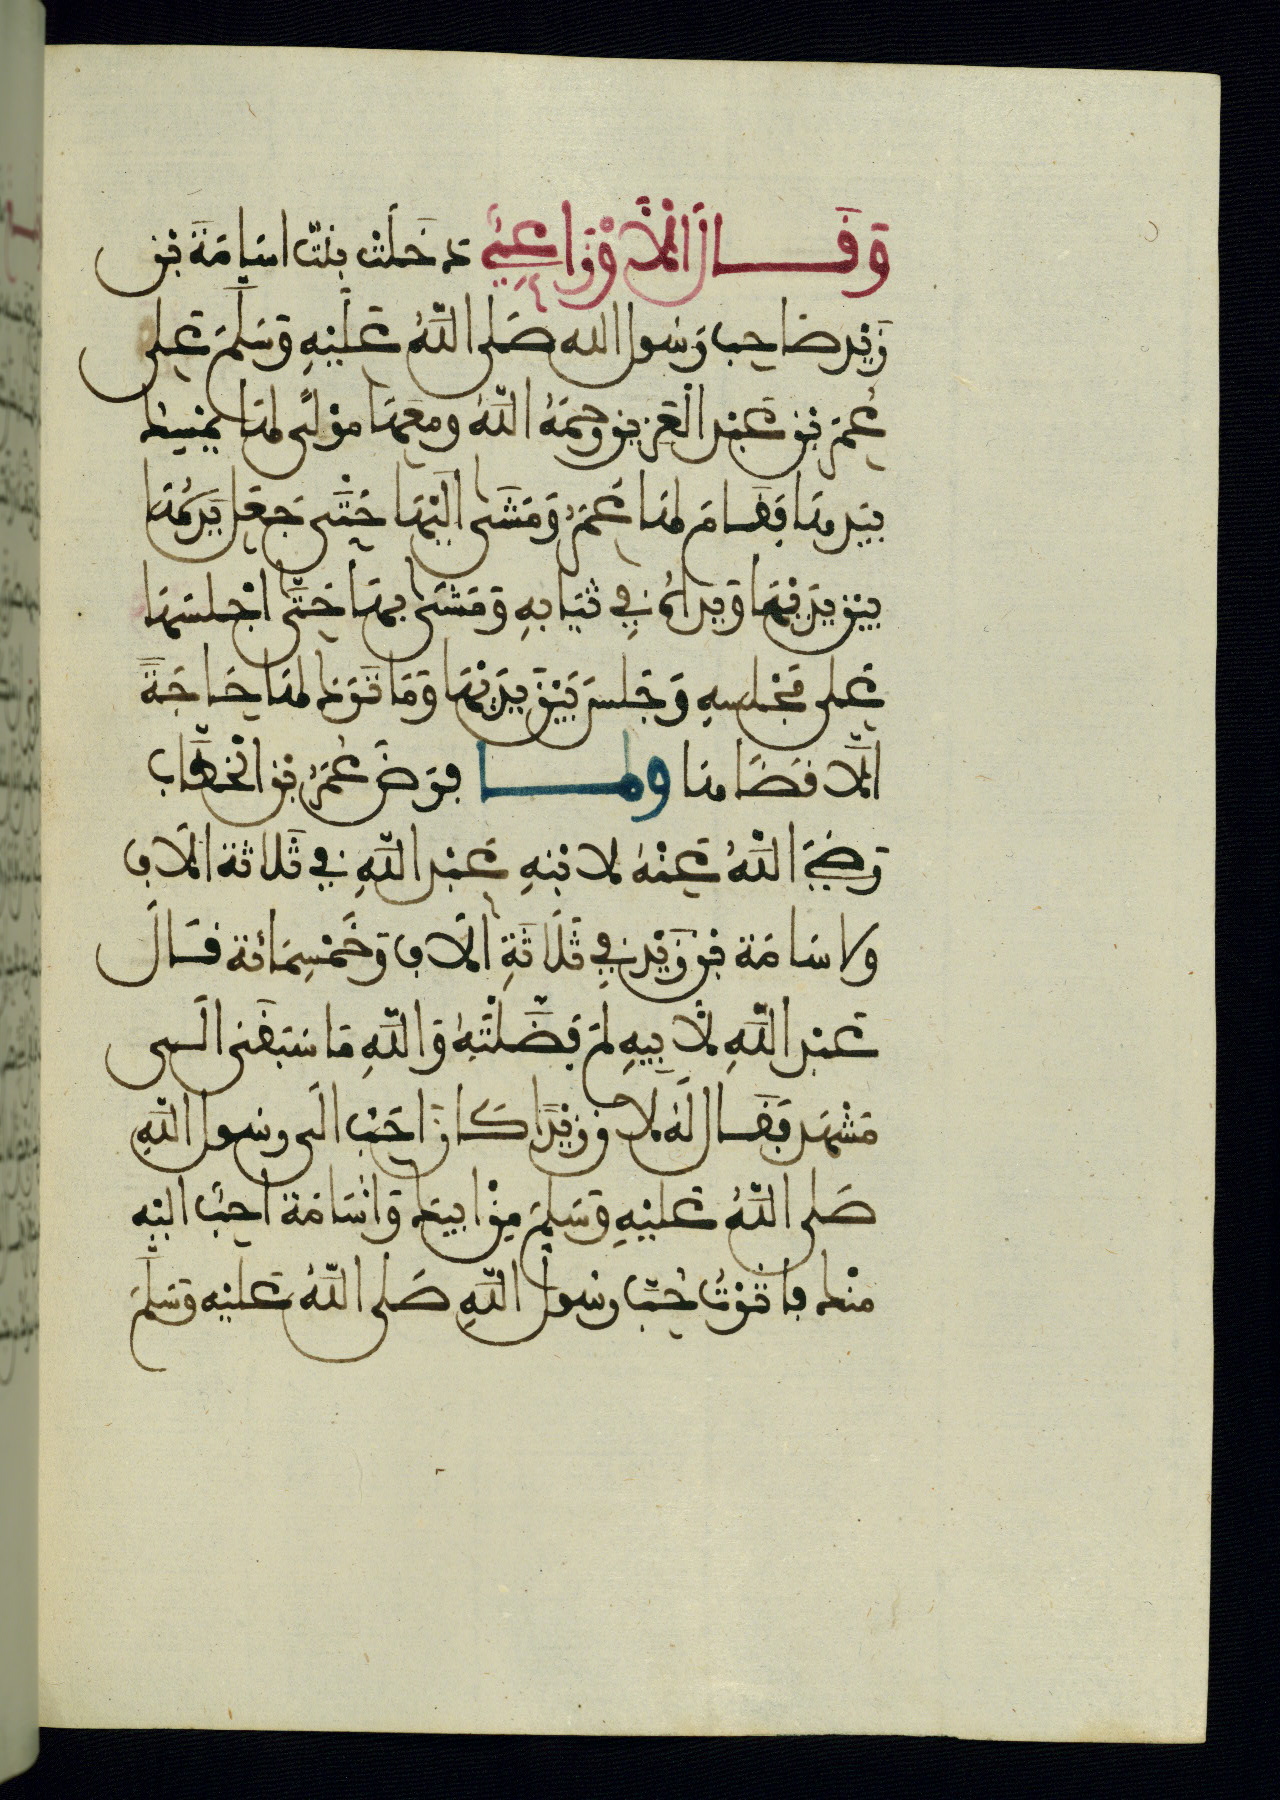 وَقَالَ الْأَوْزَاعِيُّ دَخَلَتْ بِنْتُ اسَامَةَ بْنِ
زَيْدٍ صَاحِبِ رَسُولِ اللهِ صَلَّى اللَّهُ عَلَيْهِ وَسَلَّمَ عَلَى
عُمَرَ بْنِ عَبْدِ الْعَزِيزِ رَحِمَهُ اللَّهُ وَمَعَهَا مَوْلًى لَهَا يُمْسِكُ
بِيَدِهَا فَقَامَ لَهَا عُمَرُ وَمَشَى إِلَيْهَا حَتَّى جَعَلَ يَدَهَا
بَيْنَ يَدَيْهَا وَيَدَاهُ فِي ثِيَابِهِ وَمَشَى بِهَا حَتَّى اجْلَسَهَا
عَلَى مَجْلِسِهِ وَجَلَسَ بَيْنَ يَدَيْهَا وَمَا تَرَكَ لَهَا حَاجَةً
الَّا قَضَاهَا ولما فَرَضَ عُمَرُ بْنُ الْخَطَّابِ
رَضِيَ اللَّهُ عَنْهُ لِابْنِهِ عَبْدِ اللَّهِ فِي ثَلَاثَةِ الَافِ
وَلِاسَامَةَ بْنِ زَيْدٍ فِي ثَلَاثَةِ الَافِ وَخَمْسِمِائَةٍ قَالَ
عَبْدُ اللَّهِ لِأَبِيهِ لِمَ فَضَّلْتَهُ وَاللَّهِ مَا سَبَقَنِي الَى
مَشْهَدٍ فَقَالَ لَهُ لِأَنَّ زَيْدًا كَانَ احَبَّ الَى رَسُولِ اللَّهِ
صَلَّى اللَّهُ عَلَيْهِ وَسَلَّمَ مِنْ ابِيكَ وَاسَامَةَ احَبُّ الَيْهِ
مِنْكَ فَاثَرْتُ حُبَّ رَسُولِ اللَّهِ صَلَّى اللَّهُ عَلَيْهِ وَسَلَّمَ